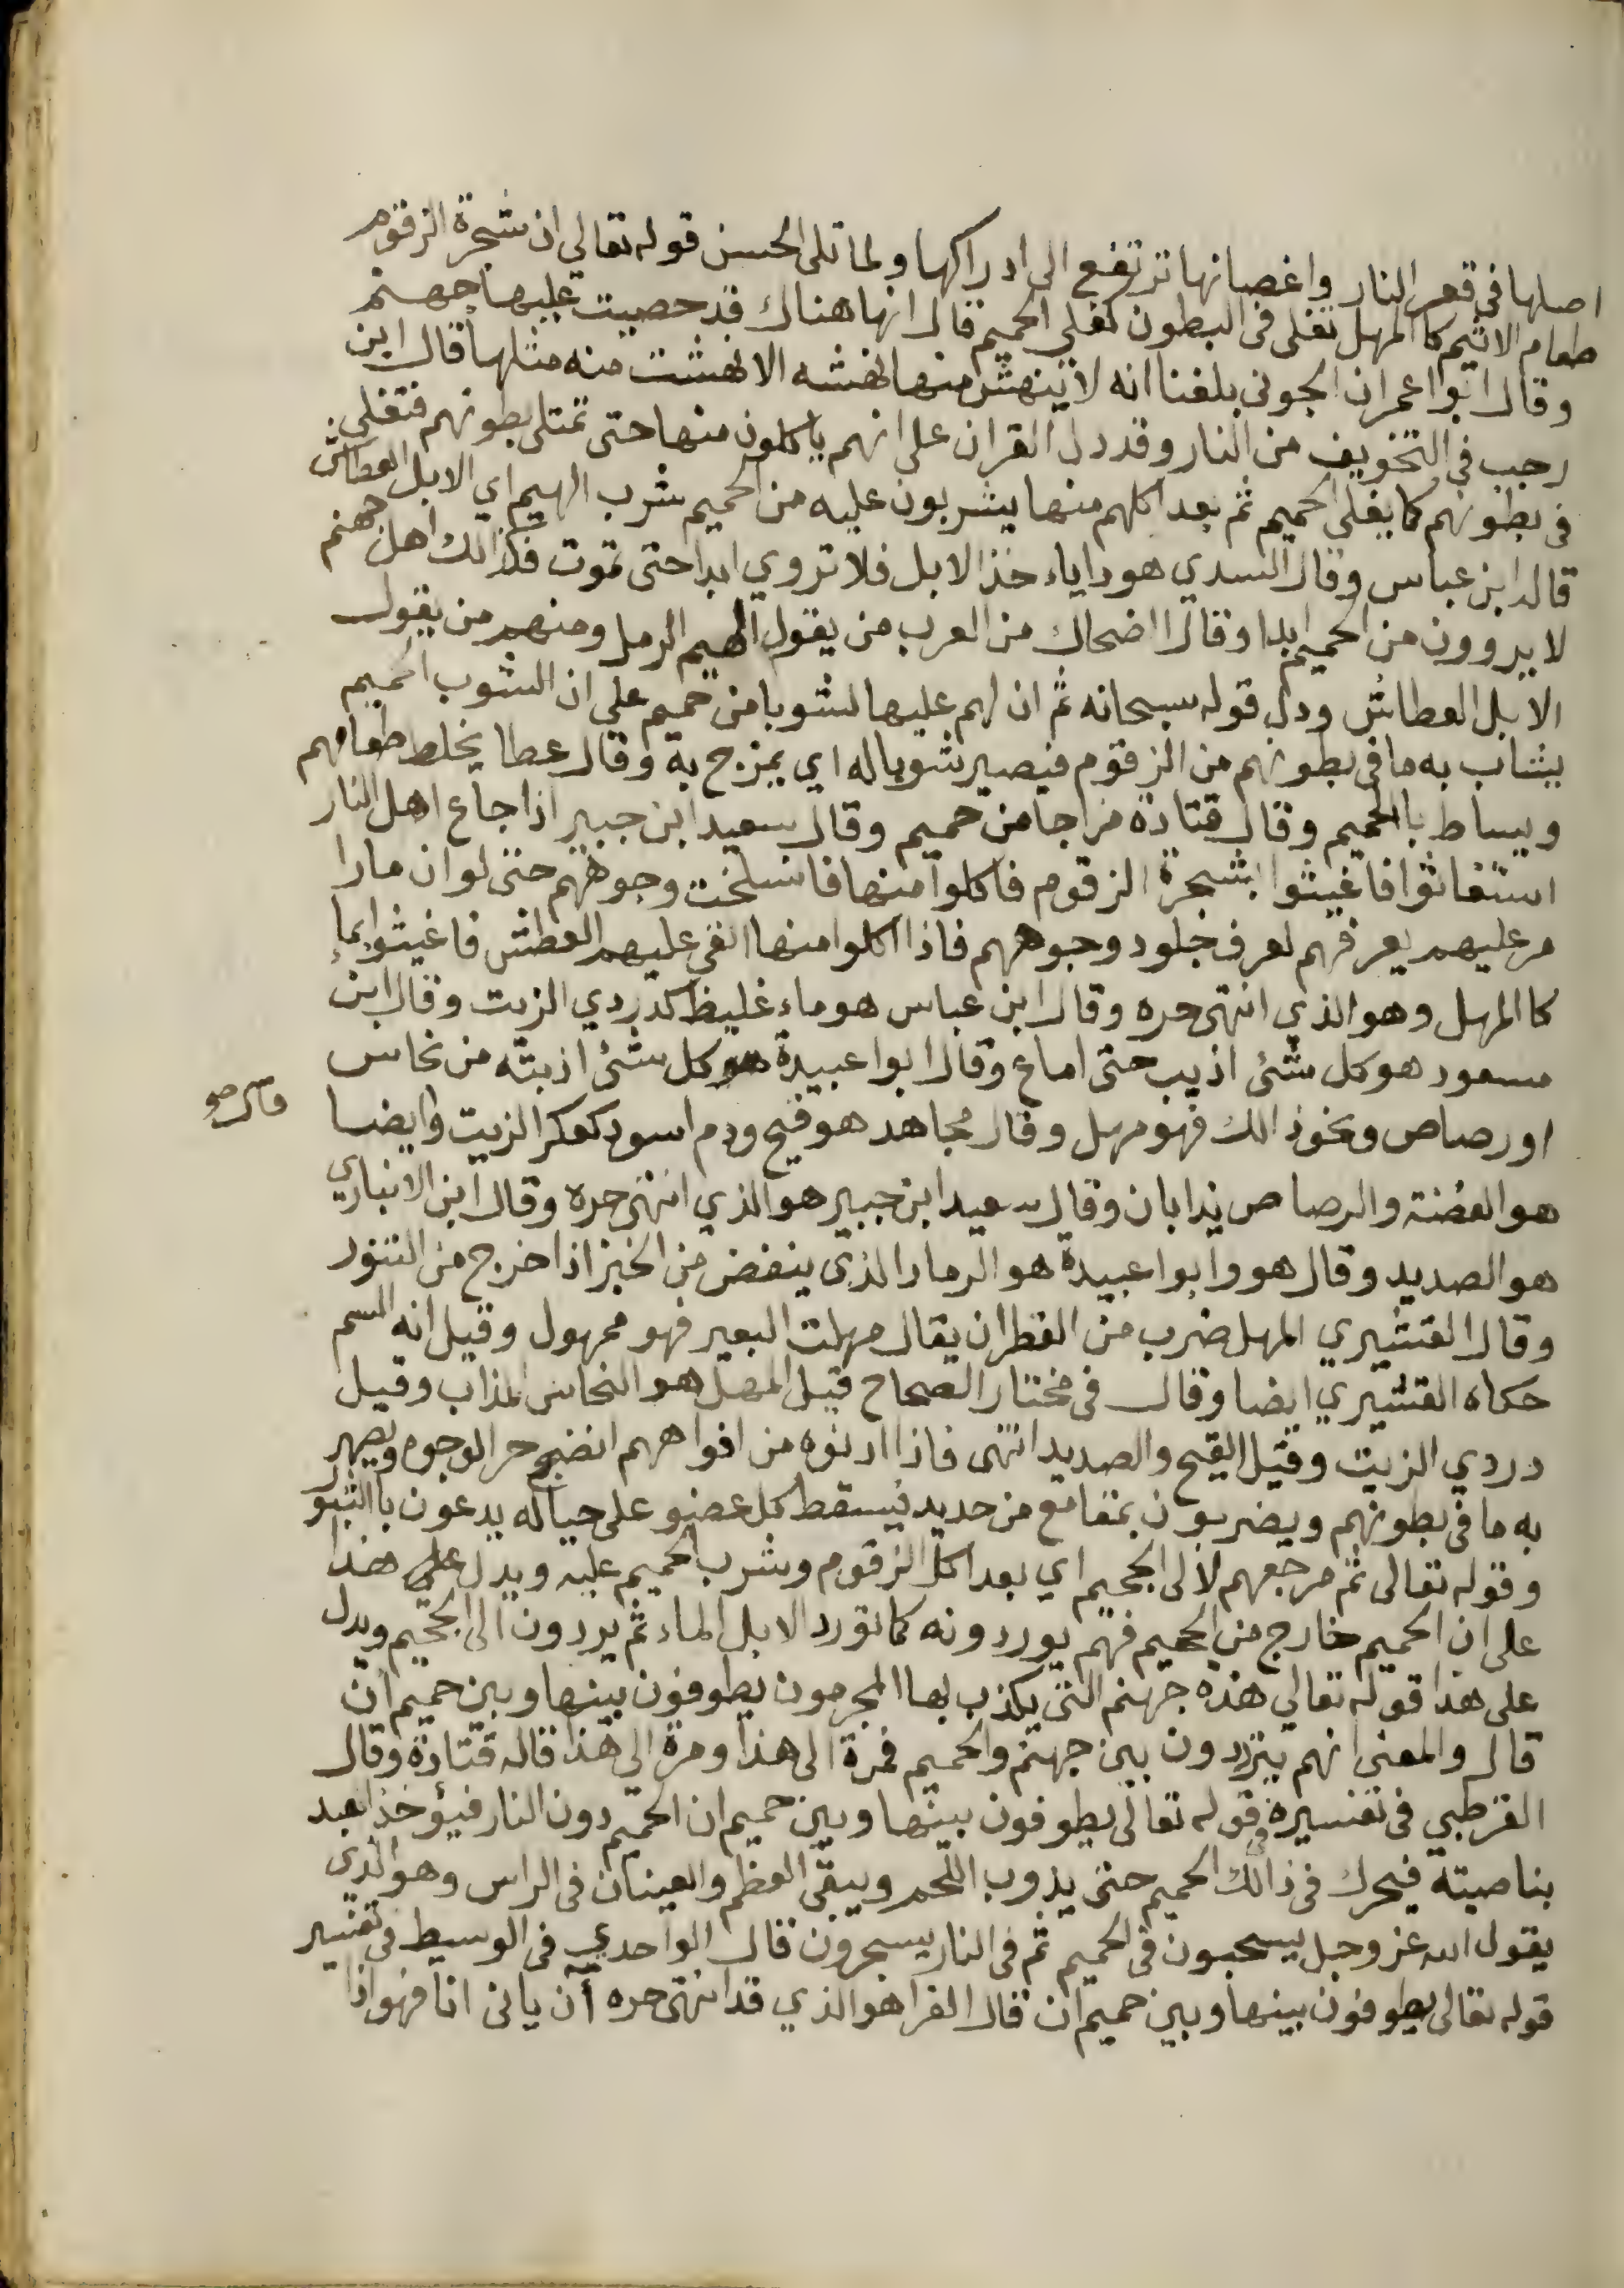 اصلها في قعر النار واغصانها ترتفع الى ادراكها ولما تلى الحسن قوله تعالى ان شجرة الزقوم
طعام الاثيم كالمهل تغلى فى البطون كغلي الحميم قال انها هناك قد حصيت عليها جهنم
وقال ابوا عمران الجونى بلغنا انه لا ينهش منها نهشه الا نهشت منه مثلها قال ابن
رجب في التخويف من النار وقد دل القران على انهم ياكلون منها حتى تمتلى بطونهم فتغلي
فى بطونهم كما يغلى الحميم ثم بعد اكلهم منها يشربون عليه من الحميم شرب الهيم اي الابل العطاش
قاله ابن عباس وقال السدي هو داياء خذ الابل فلا تروي ابدا حتى تموت فكذالك اهل جهنم
لا يروون من الحميم ابدا وقال اضحاك من العرب من يقول الهيم الرمل ومنهم من يقول
الابل العطاش ودل قوله سبحانه ثم ان لهم عليها لشوبا من حميم علي ان الشوب الحميم
يشاب به ما فى بطونهم من الزقوم فيصير شوبا له اي يمزج به وقال عطا يخلط طعامهم
ويساط باالحميم وقال قتادة مزاجا من حميم وقال سعيد ابن جبير اذا جاع اهل النار
استغاثوا فاغيثوا بشجرة الزقوم فاكلوا منها فانسلخت وجوههم حتى لو ان مارا
مر عليهم يعرفهم لعرف جلود وجوههم فاذا اكلوا منها القي عليهم العطش فاغيثوا بماء
كا المهل وهو الذي انتهى حره وقال ابن عباس هو ماء غليظ كدردي الزيت وقال ابن
مسعود هو كل شئ اذيب حتى اماع وقال ابوا عبيدة هو كل شئ اذبته من نحاس
او رصاص ونحوذالك فهو مهل وقال مجاهد هو قيح ودم اسود كعكر الزيت وايضا
قال هو
هو الفضة والرصاص يذابان وقال سعيد ابن جبير هو الذي انتهى حره وقال ابن الانباري
هو الصديد وقال هو وابوا عبيدة هو الرماد الذى ينفض من الخبز اذا خرج من التنور
وقال القشيري المهل ضرب من القطران يقال مهلت البعير فهو ممهول وقيل انه السم
حكاه القشيري ايضا وقال فى مختار الصحاح قيل المهل هو النحاس المذاب وقيل
دردي الزيت وقيل القيح والصديد انتهى فاذا ادنوه من افواههم انضج حر الوجوه ويصهر
به ما فى بطونهم ويضربون بمقامع من حديد فيسقط كل عضو على حياله يدعون باالثبور
وقوله تعالى ثم مرجعهم لالى الجحيم اي بعد اكل الزقوم وشرب الحميم عليه ويدل علي هذا
على ان الحميم خارج من الجحيم فهم يوردونه كما تورد الابل الماء ثم يردون الى الجحيم ويدل
على هذا قوله تعالي هذه جهنم التى يكذب بها المجرمون يطوفون بينها وبين حميم ان
قال والمعنى انهم يترددون بين جهنم والحميم فمرة الى هذا ومرة الى هذا قاله قتادة وقال
القرطبي فى تفسيره في قوله تعالى يطوفون بينها وبين حميم ان الحميم دون النار فيؤخذ العبد
بناصيته فيحرك فى ذالك الحميم حتى يذوب اللحم ويبقى العظم والعينان فى الراس وهو الذي
يقول الله عز وجل يسحبون فى الحميم ثم فى النار يسجرون قال الواحدي فى الوسيط فى تفسير
قوله تعالى يطوفون بينها وبين حميم ان قال الفرا هو الذي قد انتهى حره أن يانى انا فهو اذا